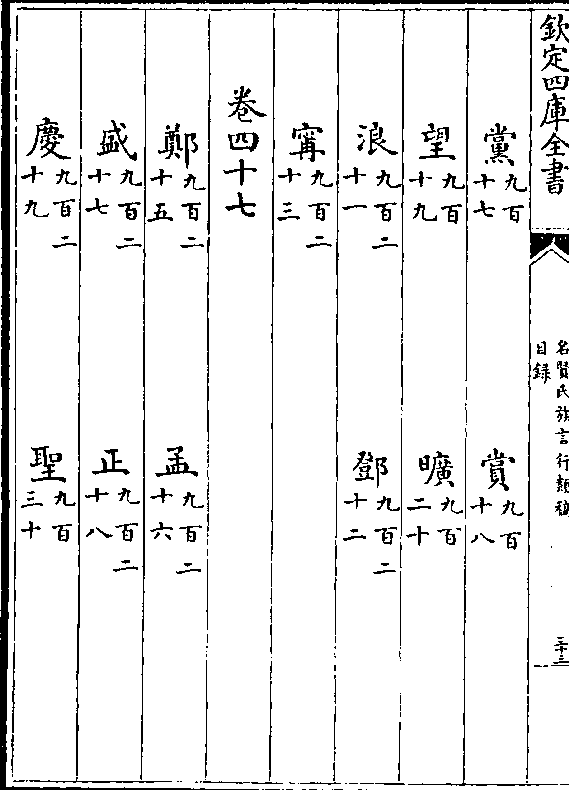 欽定四庫全書
名賢氏族言行類稿
目録
黨 九百十七 賞 九百十八
望 九百十九 曠 九百二十
浪 九百二十一 鄧 九百二十二
寗 九百二十三
卷四十七
鄭 九百二十五 孟 九百二十六
盛 九百二十七 正 九百二十八
慶 九百二十九 聖 九百三十